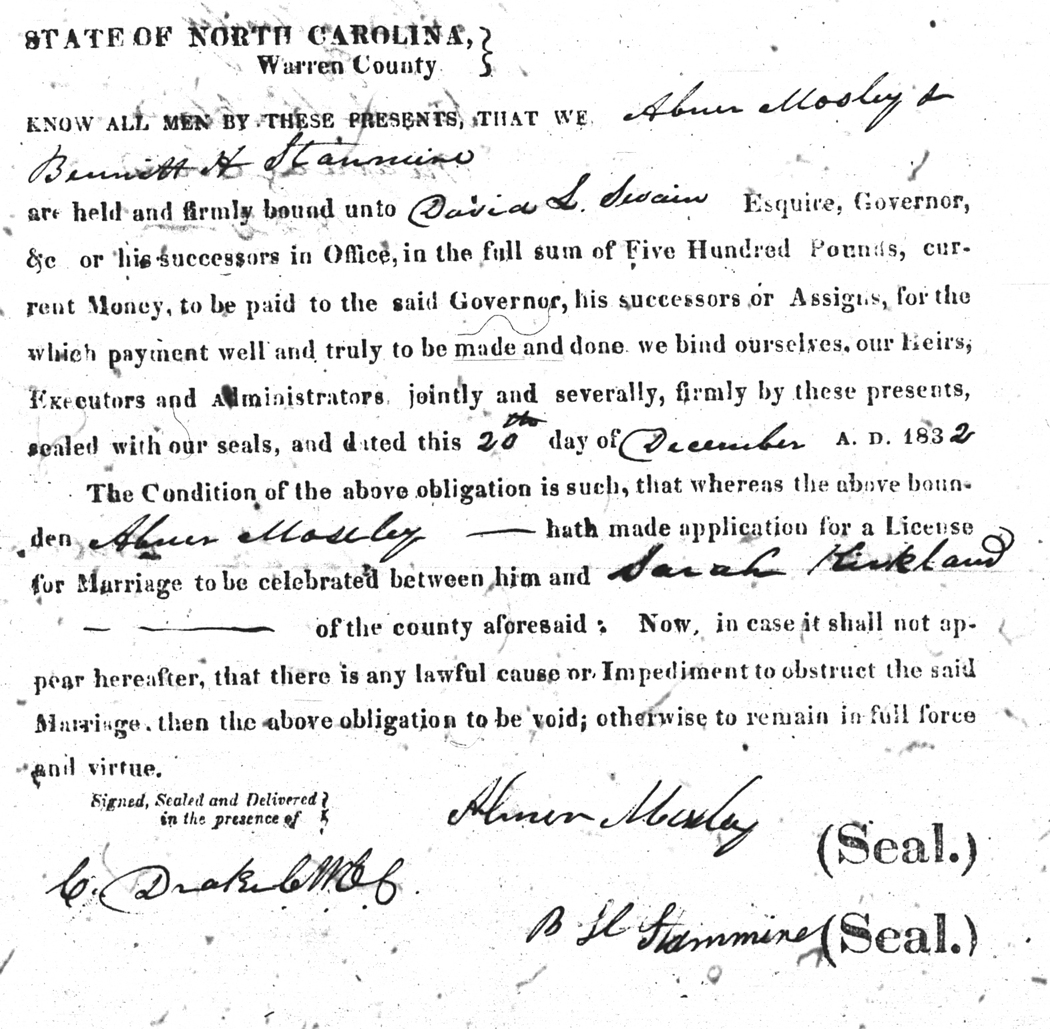 STATE OF NORTH CAROLINA,
Warren County
KNOW ALL MEN BY THESE PRESENTS, THAT WE Abner Mosley &
Bennett H Stammire
are held and firmly bound unto David L. Swain Esquire, Governor,
&c or his successors in Office, in the full sum of Five Hundred Pounds, cur-
rent Money, to be paid to the said Governor, his successors or Assigns, for the
which payment well and truly to be made and done we bind ourselves, our Heirs,
Executors and Administrators jointly and severally, firmly by these presents,
sealed with our seals, and dated this 20th day of December A. D. 1832
The Condition of the above obligation is such, that whereas the above boun-
den Abner Moseley — hath made application for a License
for Marriage to be celebrated between him and Sarah Kirkland
— — of the county aforesaid: Now, in case it shall not ap-
pear hereafter, that there is any lawful cause or Impediment to obstruct the said
Marriage, then the above obligation to be void; otherwise to remain in full force
and virtue.
Signed, Sealed and Delivered
in the presence of
Abner Mosley (Seal.)
C. Drake CWCC
B H Stammire (Seal.)